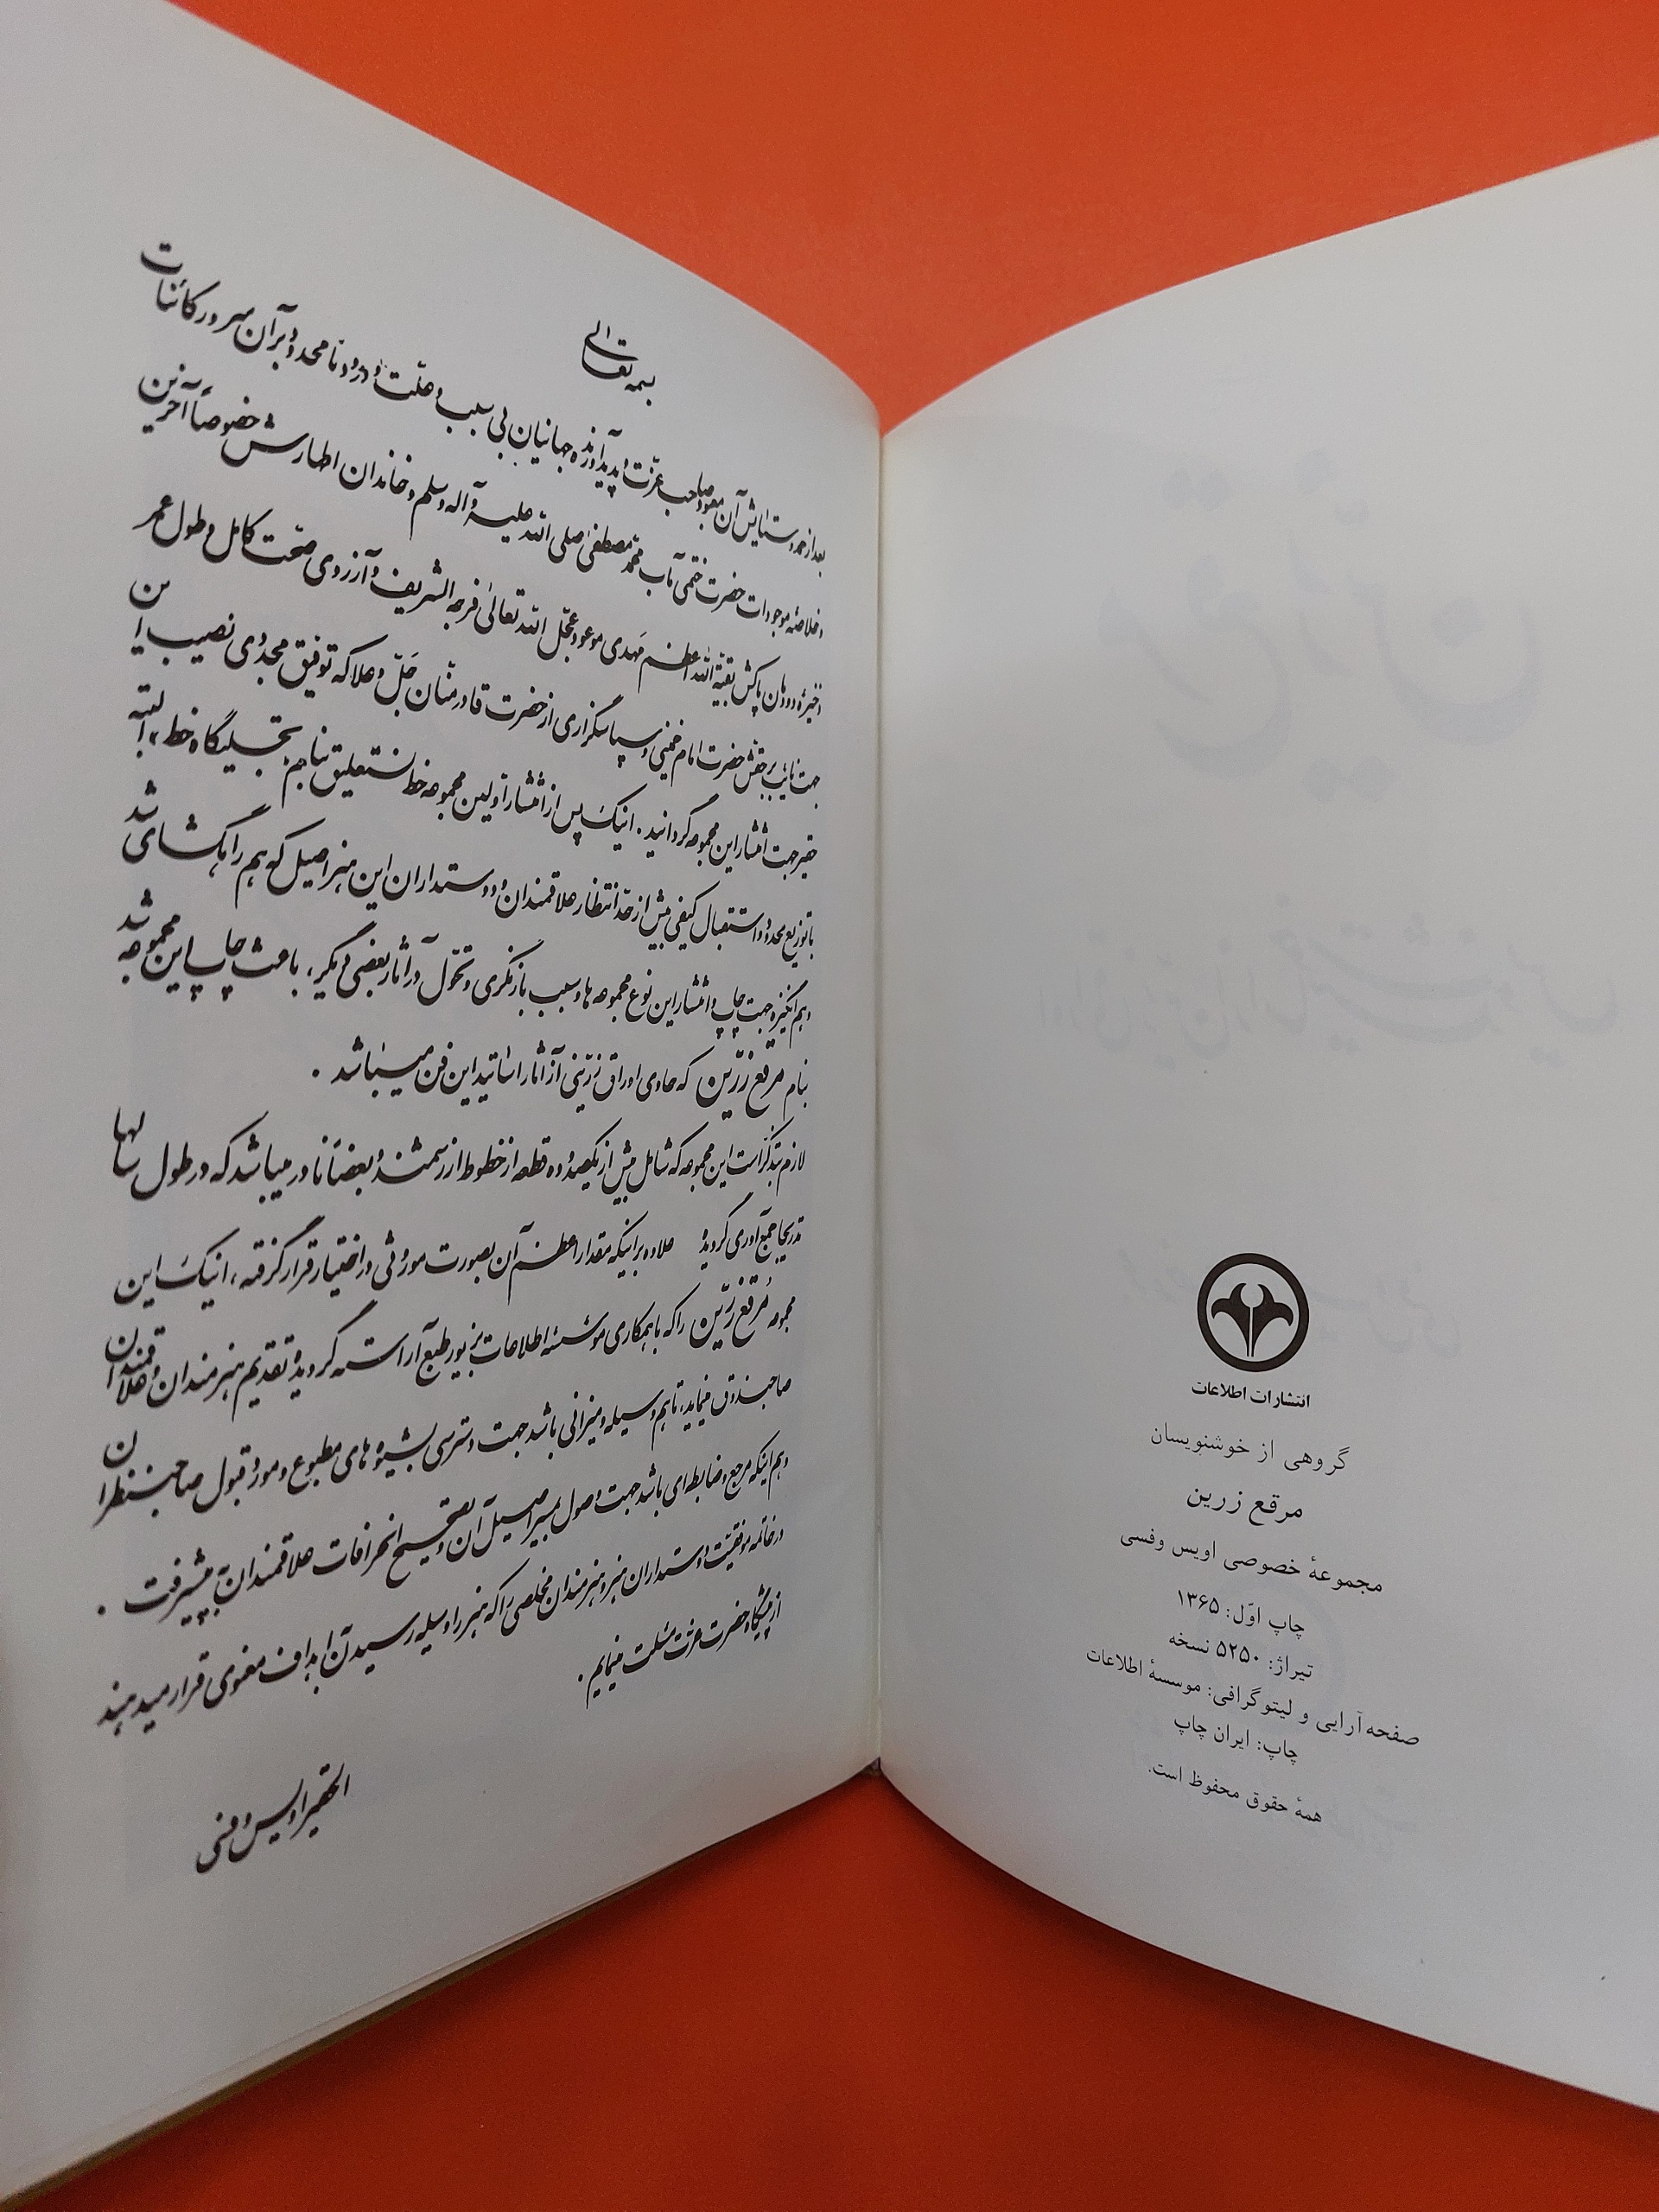 انتشارات اطلاعات
گروهی از خوشنویسان
مرقع زرین
مجموعهٔ خصوصی اویس وفسی
چاپ اوّل: ۱۳۶۵
تیراژ: ۵۲۵۰ نسخه
صفحه‌آرایی و لیتوگرافی: موسسهٔ اطلاعات
چاپ: ایران چاپ
همهٔ حقوق محفوظ است.
بسمه تعالی
بعد از حمد و ستایش آن معبود صاحب عزّت و پدیدآورنده جهانیان بی سبب و علّت و درود نامحدود بر آن سرور کائنات
و خلاصهٔ موجودات حضرت ختمی مآب محمد مصطفی صلی الله علیه و آله و سلم و خاندان اطهارش خصوصاً آخرین
ذخیرهٔ دودمان پاکش بقیة الله اعظم مهدی موعود عجّل الله تعالی فرجه الشریف و آرزوی صحّت کامل و طول عمر
جهت نایب برحقش حضرت امام خمینی و سپاسگزاری از حضرت قادر منّان جَلّ و علا که توفیق مجدّدی نصیب این
حقیر جهت انتشار این مجموعه گردانید. اینک پس از انتشار اولین مجموعه خط نستعلیق بنام «تجلیگاه خط» البته
با توزیع محدود و استقبال کیفی بیش از حدّ انتظار علاقمندان و دوستداران این هنر اصیل که هم راهگشای شد
و هم انگیزه جهت چاپ و انتشار این نوع مجموعه‌ها و سبب بازنگری و تحوّل در آثار بعضی دیگر، باعث چاپ این مجموعه شد
بنام مرقع زرّین که حاوی اوراق زرّینی از آثار اساتید این فن میباشد.
لازم بتذکّر است این مجموعه که شامل بیش از یکصد و ده قطعه از خطوط ارزشمند و بعضاً نادر میباشد که در طول سالها
تدریجاً جمع‌آوری گردیده علاوه بر اینکه مقدار اعظم آن بصورت موروثی در اختیار قرار گرفته، اینک این
مجموعه مُرقع زرّین را که با همکاری مؤسسهٔ اطلاعات بزیور طبع آراسته گردیده تقدیم هنرمندان و علاقمندان
صاحبذوق مینماید، تا هم وسیله و میزانی باشد جهت دسترسی بشیوه‌های مطبوع و مورد قبول صاحبنظران
و هم اینکه مرجع و ضابطه‌ای باشد جهت وصول بمسیر اصیل آن و تصحیح انحرافات علاقمندان بپیشرفت.
در خاتمه موفقیّت دوستداران هنر و هنرمندان مخلصی را که هنر را وسیله رسیدن به اهداف معنوی قرار میدهند
از پیشگاه حضرت عزّت مسئلت مینمایم.
الحقیر اویس وفسی